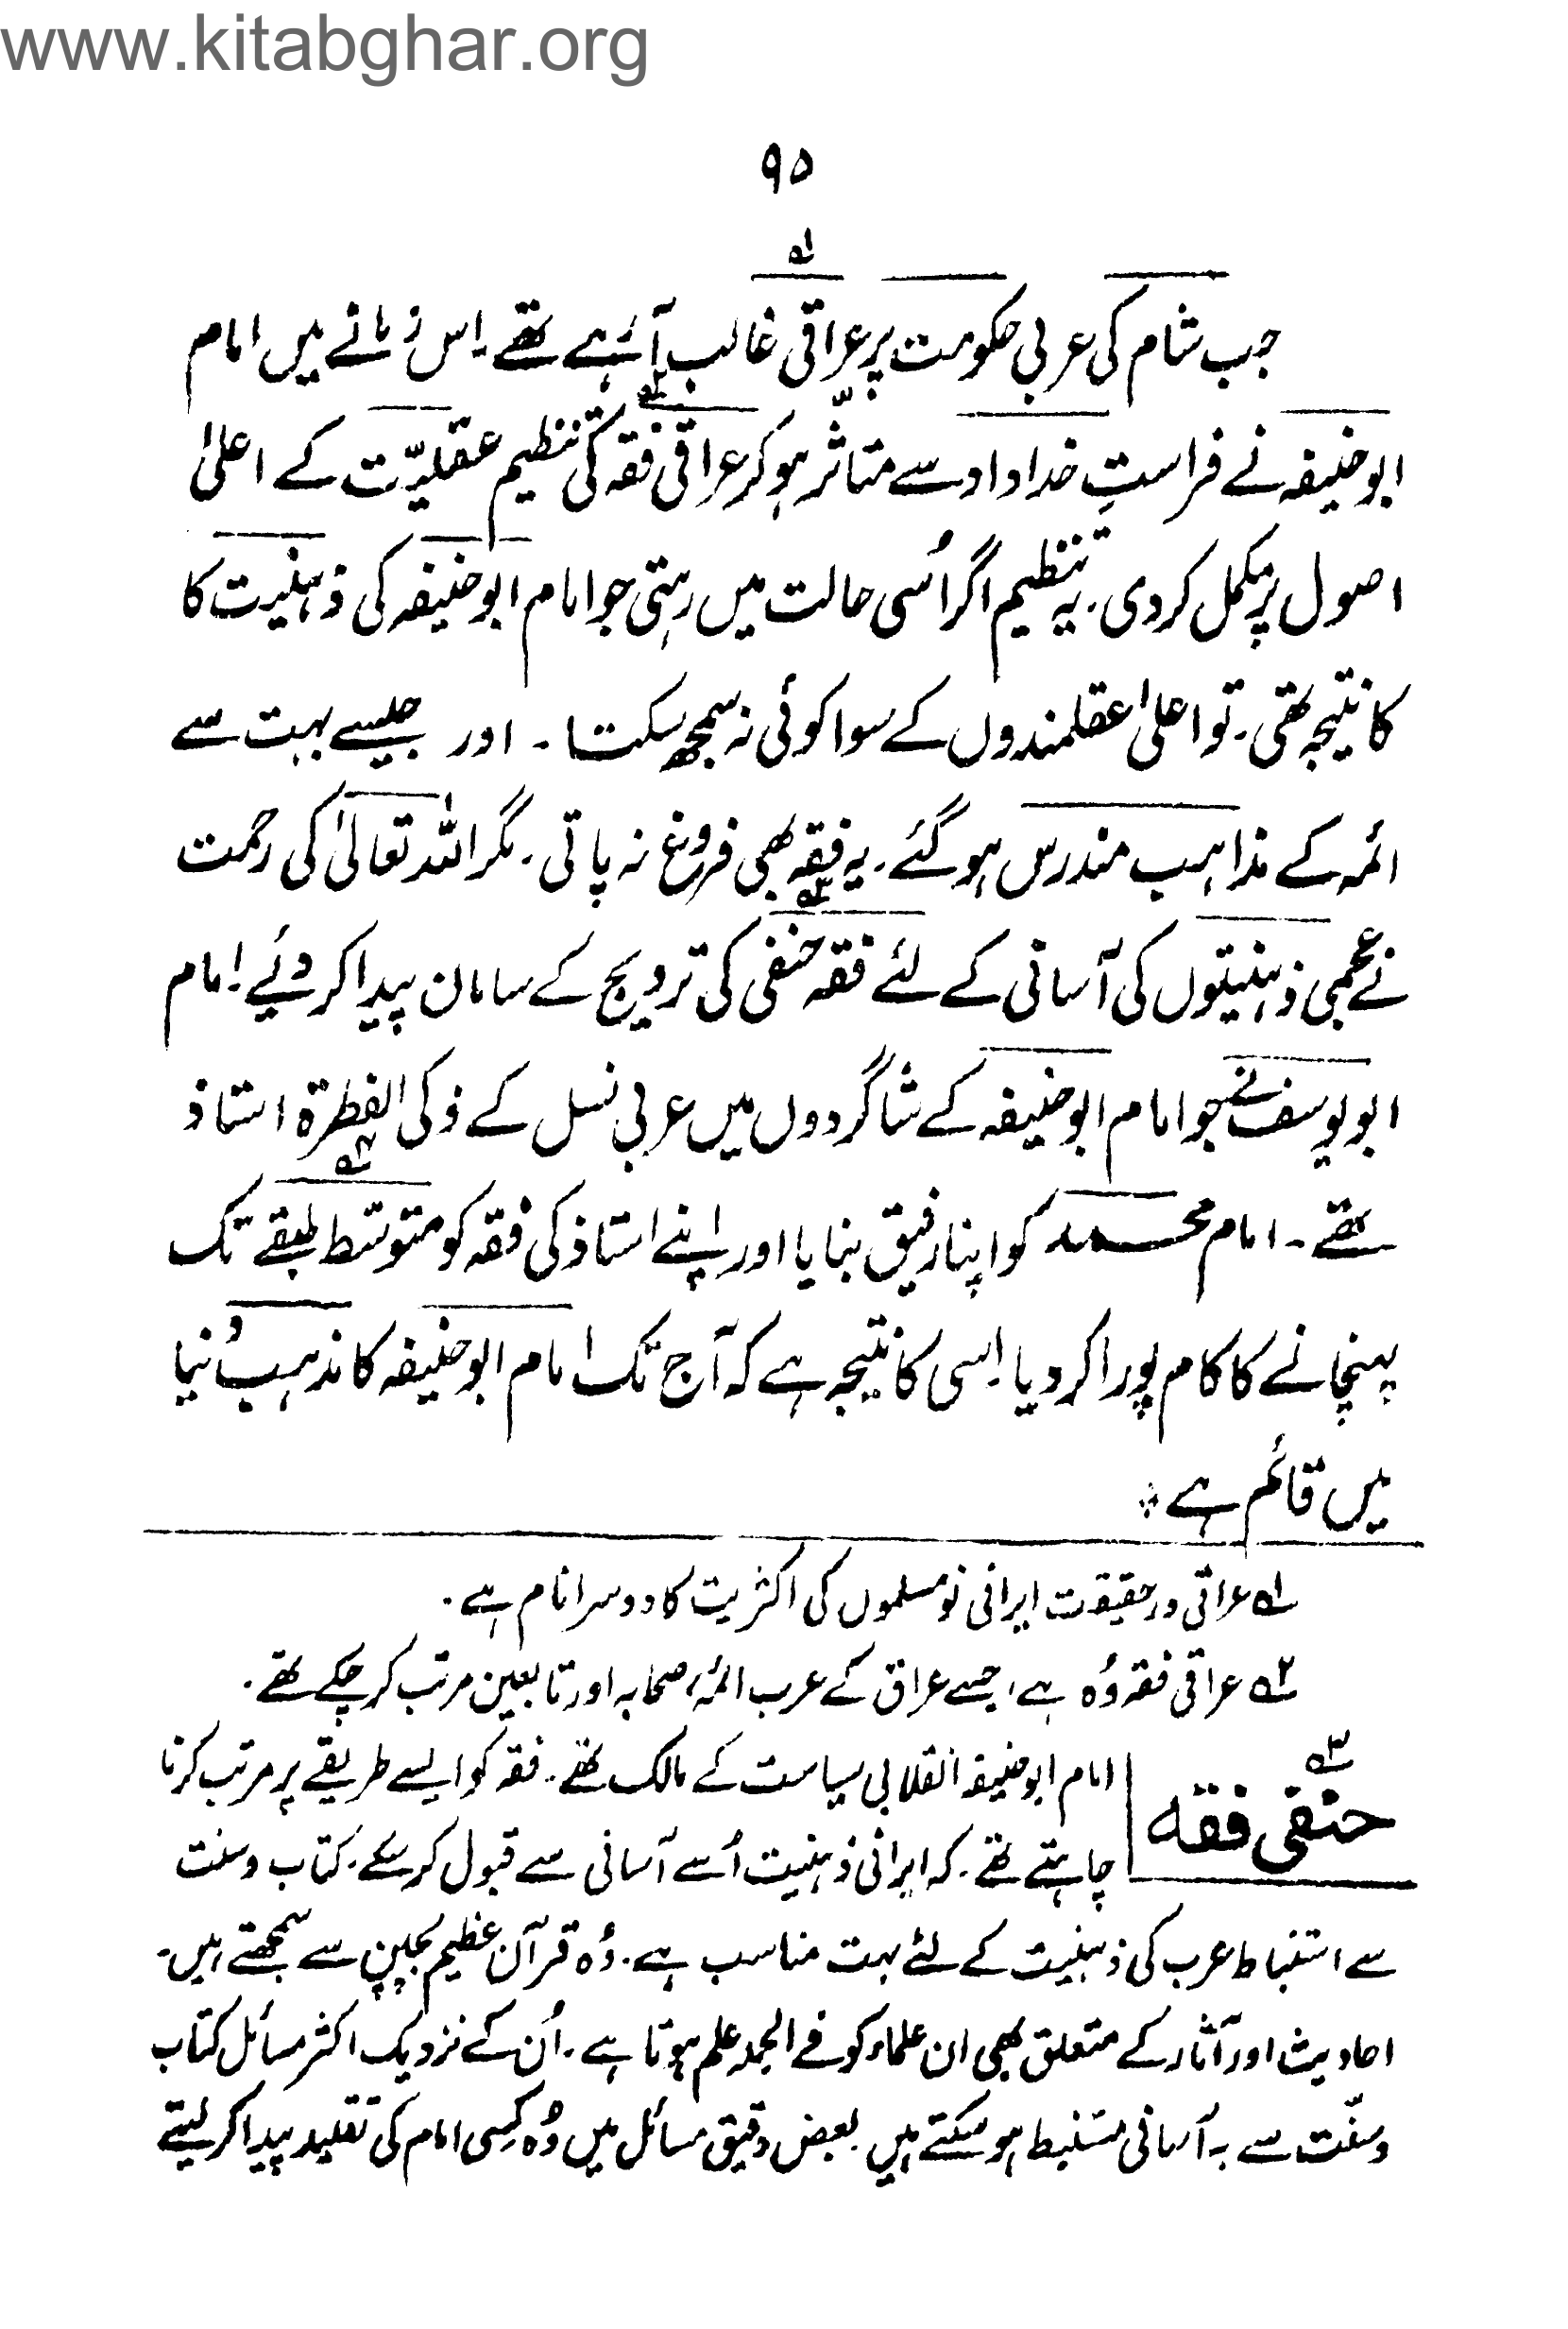 www.kitabghar.org
۹۵
جب شام کی عربی حکومت پر عراقی ۱ غالب آ رہے تھے۔ اِس زمانے میں امام
ابو حنیفہ نے فراستِ خداداد سے متاثّر ہو کر عراقی فقہ ۲ کی تنظیم عقلیّت کے اعلیٰ
اصول پر مکمل کر دی۔ یہ تنظیم اگر اُسی حالت میں رہتی جو امام ابو حنیفہ کی ذہنیت کا
کا نتیجہ تھی۔ تو اعلیٰ عقلمندوں کے سوا کوئی نہ سمجھ سکتا۔ اور جیسے بہت سے
ائمہ کے مذاہب مندرس ہو گئے۔ یہ فقہ بھی فروغ نہ پاتی۔ مگر اللہ تعالیٰ کی رحمت
نے عجمی ذہنیتوں کی آسانی کے لئے فقہ حنفی ۳ کی ترویج کے سامان پیدا کر دئیے۔ امام
ابو یوسف نے جو امام ابو حنیفہ کے شاگردوں میں عربی نسل کے ذکی الفطرۃ ۴ استاذ
تھے۔ امام محمد کو اپنا رفیق بنایا اور اپنے استاذ کی فقہ کو متوسّط طبقے تک
پہنچانے کا کام پورا کر دیا۔ اِسی کا نتیجہ ہے کہ آج تک امام ابو حنیفہ کا مذہب دُنیا
میں قائم ہے
۱ عراقی درحقیقت ایرانی نو مسلموں کی اکثریت کا دوسرا نام ہے۔
۲ عراقی فقہ وُہ ہے، جسے عراق کے عرب ائمہ، صحابہ اور تابعین مرتب کر چکے تھے۔
۳ حنفی فقہ
امام ابو حنیفہ انقلابی سیاست کے مالک تھے۔ فقہ کو ایسے طریقے پر مرتب کرنا
چاہتے تھے۔ کہ ایرانی ذہنیت اُسے آسانی سے قبول کر سکے۔ کتاب و سنت
سے استنباط عرب کی ذہنیت کے لئے بہت مناسب ہے۔ وُہ قرآن عظیم بچپن سے سمجھتے ہیں۔
احادیث اور آثار کے متعلق بھی ان علماء کو فے الجملہ علم ہوتا ہے۔ اُن کے نزدیک اکثر مسائل کتاب
و سنّت سے بہ آسانی مستنبط ہو سکتے ہیں۔ بعض دقیق مسائل میں وُہ کسی امام کی تقلید پیدا کر لیتے